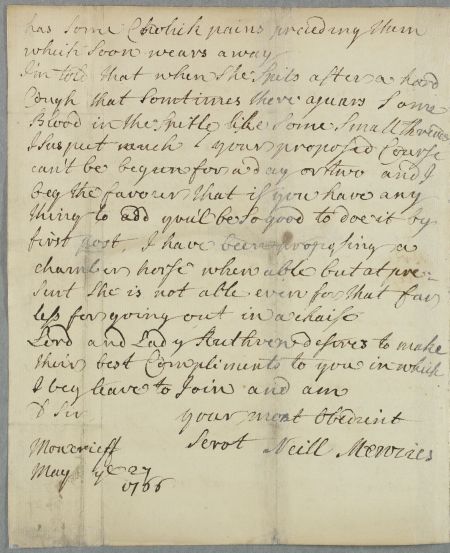 has some Cholick pains preceding them
which soon wears away
I'm told that when she spits after a hard
Cough that sometimes there apears some
Blood in the spitle like some small threeds
I suspect much your proposed Course
can't be begun for a day or two and I
beg the favour that if you have any
thing to add you'l be so good to doe it by
first post. I have been proposing a
chamber horse when able but at pre-
sent she is not able even for that far
less for going out in a chaise
Lord and Lady Ruthven desires to make
their best Compliments to you in which
I beg leave to Join and am
D Sir your most Obedient
Servt Neill
Moncrieff
May ye 27